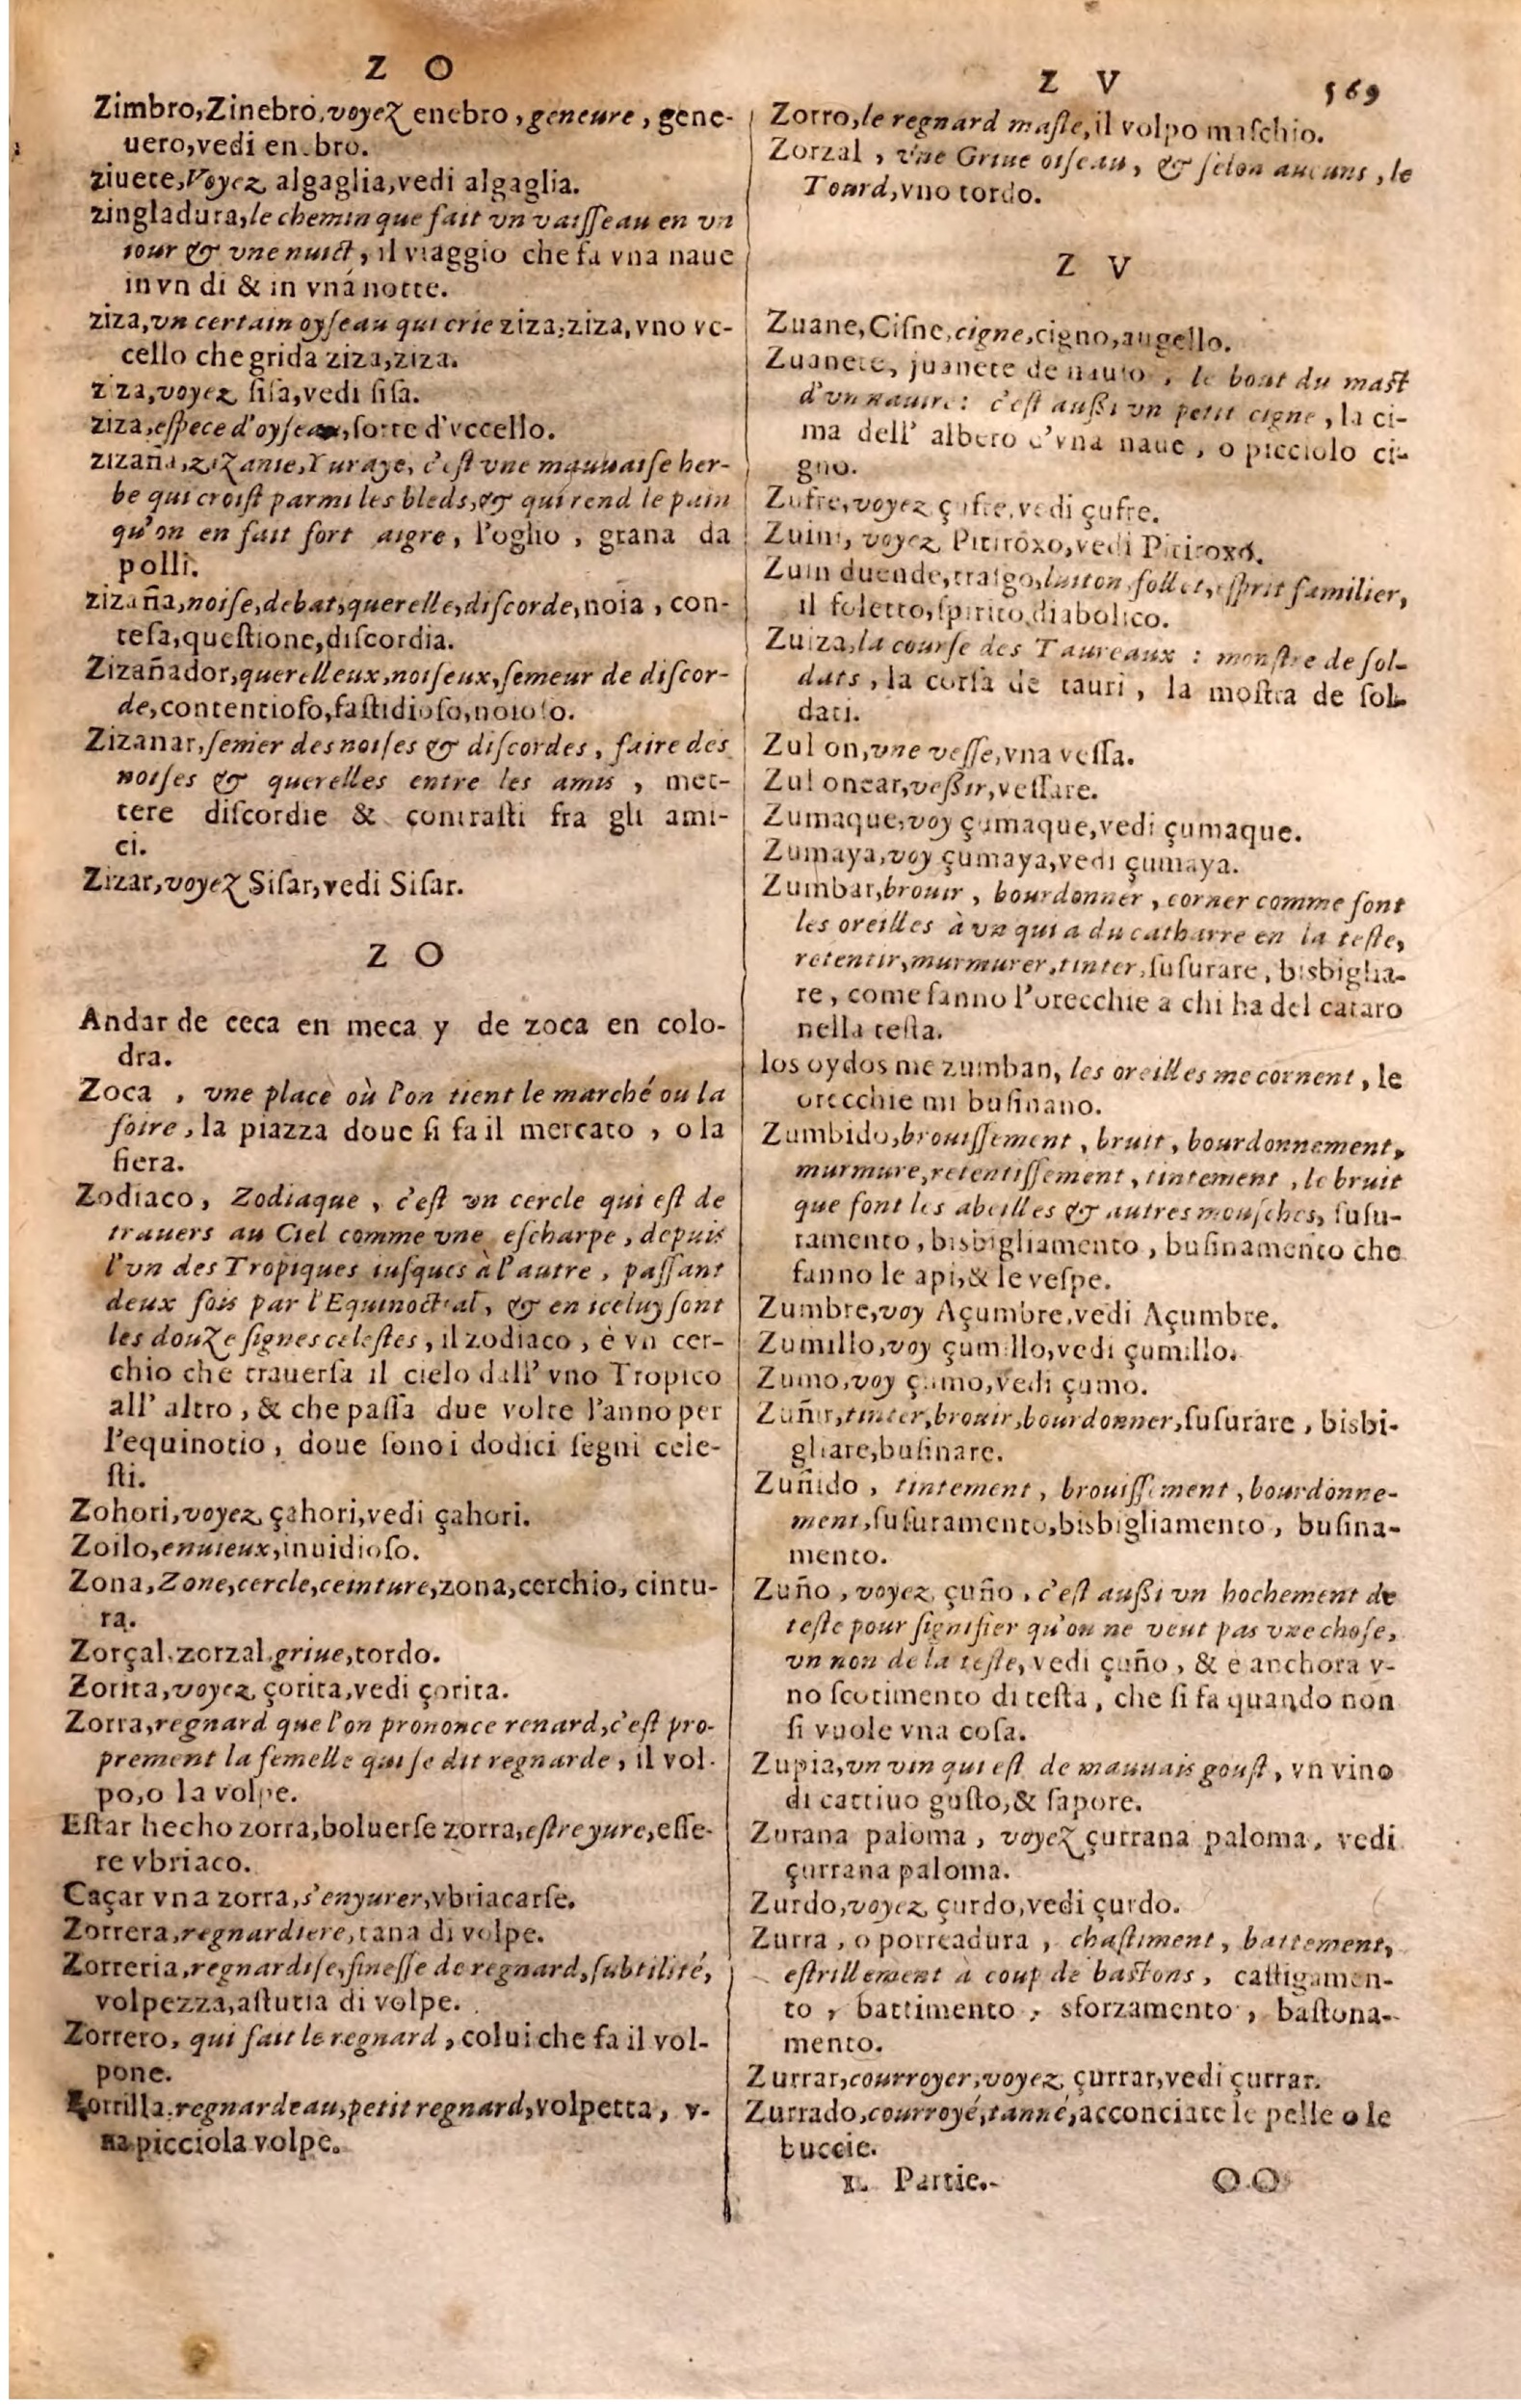 Z O
Zimbro,Zinebro,voyez enebro, geneure, gene-
uero,vedi en bro.
ziuete,Voyez algaglia,vedi algaglia.
zingladura,le chemin que fait vn vaiſſeau en vn
iour & vne nuict, il viaggio che fa vna naue
in vn di & in vna notte.
ziza,vn certain oyſeau qui crie ziza,ziza, vno vc-
cello che grida ziza,ziza.
ziza,voyez ſiſa,vedi ſiſa.
ziza,eſpece d'oyſeau,ſorte d'vccello.
zizaña,zizanie,Yuraye, c'eſt vne mauuaiſe her-
be qui croiſt parmi les bleds,& qui rend le pain
qu'on en fait fort aigre, l'oglio, grana da
polli.
zizaña,noiſe,debat,querelle,diſcorde,noia, con-
teſa,queſtione,diſcordia.
Zizañador,querelleux,noiſeux,ſemeur de diſcor-
de,contentioſo,faſtidioſo,noioſo.
Zizanar,ſemer des noiſes & diſcordes, faire des
noiſes & querelles entre les amis, met-
tere diſcordie & contraſti fra gli ami-
ci.
Zizar,voyez Siſar,vedi Siſar.
Z O
Andar de ceca en meca y de zoca en colo-
dra.
Zoca, vne place où l'on tient le marché ou la
foire, la piazza doue ſi fa il mercato, o la
fiera.
Zodiaco, Zodiaque, c'eſt vn cercle qui eſt de
trauers au Ciel comme vne eſcharpe, depuis
l'vn des Tropiques iuſques à l'autre, paſſant
deux fois par l'Equinoctial, & en iceluy ſont
les douze ſignes celeſtes, il zodiaco, è vn cer-
chio che trauerſa il cielo dall' vno Tropico
all' altro, & che paſſa due volte l'anno per
l'equinotio, doue ſono i dodici ſegni cele-
ſti.
Zohori,voyez çahori,vedi çahori.
Zoilo,enuieux,inuidioſo.
Zona,Zone,cercle,ceinture,zona,cerchio, cintu-
ra.
Zorçal,zorzal,griue,tordo.
Zorita,voyez çorita,vedi çorita.
Zorra,regnard que l'on prononce renard,c'eſt pro-
prement la femelle qui ſe dit regnarde, il vol-
po,o la volpe.
Eſtar hecho zorra,boluerſe zorra,eſtre yure,eſſe-
re vbriaco.
Caçar vna zorra,s'enyurer,vbriacarſe.
Zorrera,regnardiere,tana di volpe.
Zorreria,regnardiſe,fineſſe de regnard,ſubtilité,
volpezza,aſtutia di volpe.
Zorrero, qui fait le regnard, colui che fa il vol-
pone.
Zorrilla,regnardeau,petit regnard,volpetta, v-
na picciola volpe.
Z V 569
Zorro,le regnard maſle,il volpo maſchio.
Zorzal, vne Griue oiſeau, & ſelon aucuns, le
Tourd,vno tordo.
Z V
Zuane,Ciſne,cigne,cigno,augello.
Zuanete, juanete de nauio, le bout du maſt
d'vn nauire: c'eſt auſſi vn petit cigne, la ci-
ma dell' albero d'vna naue, o picciolo ci-
gno.
Zufre,voyez çufre,vedi çufre.
Zuini, voyez Pitiróxo,vedi Pitiroxo.
Zuin duende,traſgo,luiton,follet,eſprit familier,
il foletto,ſpirito diabolico.
Zuiza,la courſe des Taureaux: monſtre de ſol-
dats, la corſa de tauri, la moſtra de ſol-
dati.
Zul on,vne veſſe,vna veſſa.
Zul onear,veſſir,veſſare.
Zumaque,voy çumaque,vedi çumaque.
Zumaya,voy çumaya,vedi çumaya.
Zumbar,brouir, bourdonner, corner comme font
les oreilles à vn qui a du catharre en la teſte,
retentir,murmurer,tinter,ſuſurare, bisbiglia-
re, come fanno l'orecchie a chi ha del cataro
nella teſta.
los oydos me zumban, les oreilles me cornent, le
orecchie mi buſinano.
Zumbido,brouiſſement, bruit, bourdonnement,
murmure,retentiſſement, tintement, le bruit
que font les abeilles & autres mouſches, ſuſu-
ramento, bisbigliamento, buſinamento che
fanno le api,& le veſpe.
Zumbre,voy Açumbre,vedi Açumbre.
Zumillo,voy çumillo,vedi çumillo.
Zumo,voy çumo,vedi çumo.
Zuñir,tinter,brouir,bourdonner,ſuſurare, bisbi-
gliare,buſinare.
Zuñido, tintement, brouiſſement, bourdonne-
ment,ſuſuramento,bisbigliamento, buſina-
mento.
Zuño, voyez çuño, c'eſt auſſi vn hochement de
teſte pour ſignifier qu'on ne veut pas vne choſe,
vn non de la teſte, vedi çuño, & è anchora v-
no ſcotimento di teſta, che ſi fa quando non
ſi vuole vna coſa.
Zupia,vn vin qui eſt de mauuais gouſt, vn vino
di cattiuo guſto,& ſapore.
Zurana paloma, voyez çurrana paloma, vedi
çurrana paloma.
Zurdo,voyez çurdo,vedi çurdo.
Zurra, o porreadura, chaſtiment, battement,
eſtrillement à coup de baſtons, caſtigamen-
to, battimento, sforzamento, baſtona-
mento.
Zurrar,courroyer,voyez çurrar,vedi çurrar.
Zurrado,courroyé,tanné,acconciate le pelle o le
buccie.
II. Partie. OO